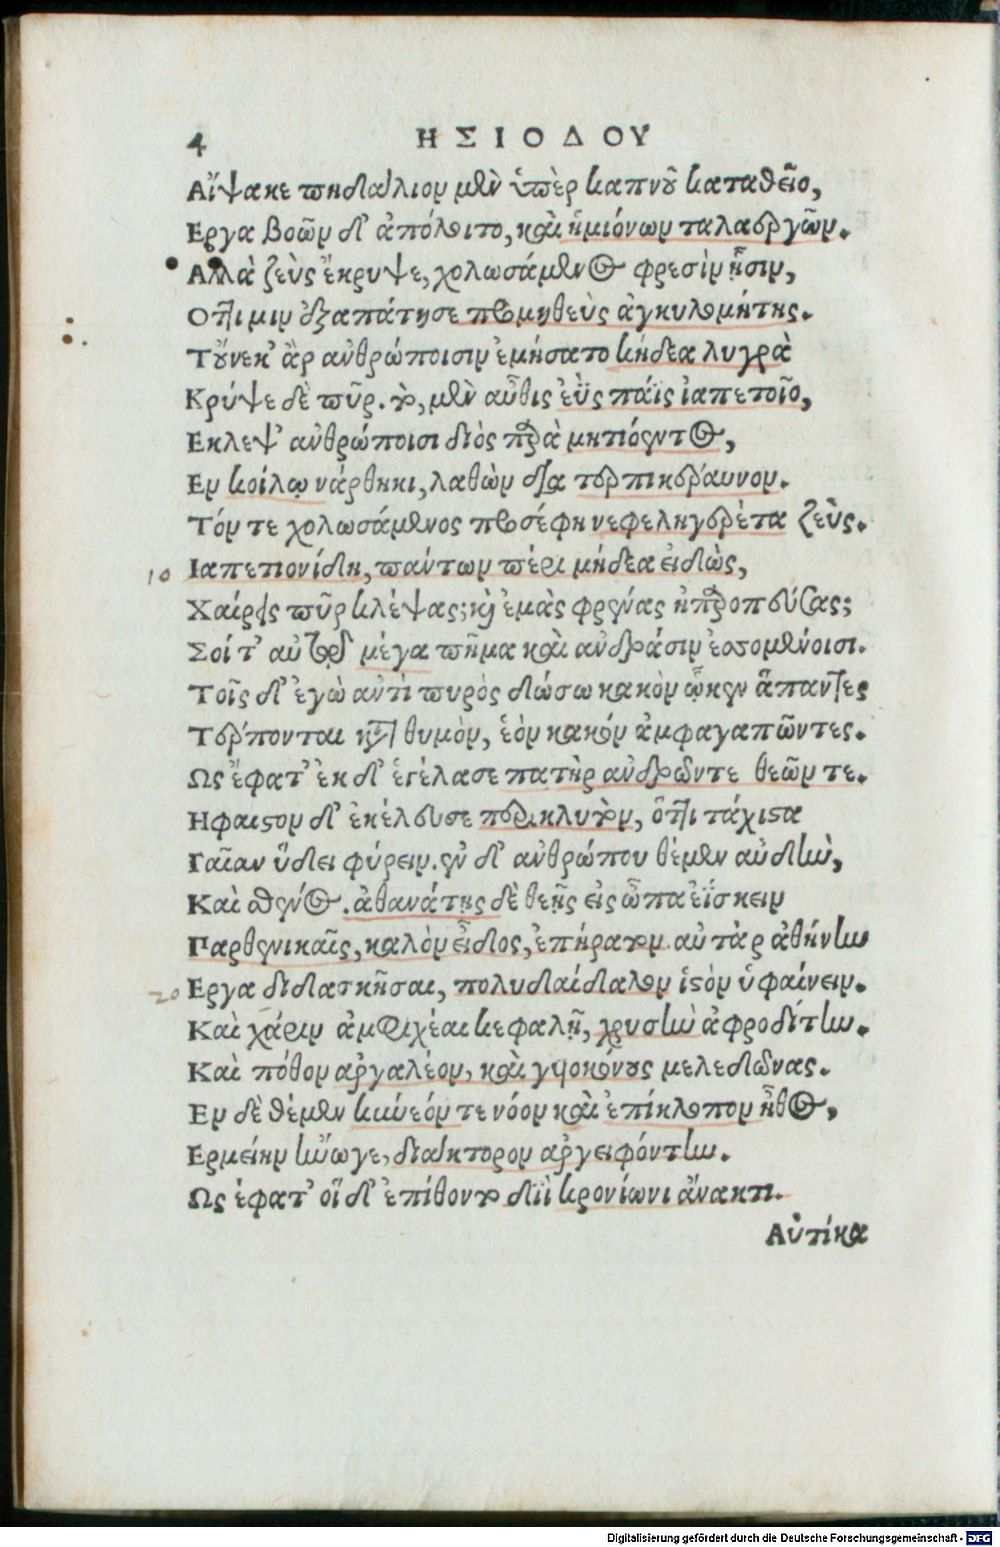 4 ΗΣΙΟΔΟΥ
Αἴψακε πηδάλιον μὲν ὑπὲρ καπνοῦ καταθεῖο,
Εργα βοῶν δ' ἀπόλοιτο, καὶ ἡμιόνων ταλαεργῶν.
Αλλὰ ζεὺς ἔκρυψε, χολωσάμενος φρεσὶν ᾗσιν,
Οτι μιν ἐξαπάτησε προμηθεὺς ἀγκυλομήτης.
Τοὔνεκ' ἂρ ἀνθρώποισιν ἐμήσατο κήδεα λυγρὰ
Κρύψε δὲ πῦρ. τὸ, μὲν αὖθις ἐῢς πάϊς ἰαπετοῖο,
Εκλεψ' ἀνθρώποισι διὸς παρὰ μητιόεντος,
Εν κοίλῳ νάρθηκι, λαθὼν δία τερπικέραυνον.
Τόν τε χολωσάμενος προσέφη νεφεληγερέτα ζεὺς.
10 Ιαπετιονίδη, πάντων πέρι μήδεα εἰδὼς,
Χαίρεις πῦρ κλέψας; καὶ ἐμὰς φρένας ἠπεροπεύσας;
Σοί τ' αὐτῷ μέγα πῆμα καὶ ανδράσιν ἐσσομένοισι.
Τοῖς δ' ἐγὼ αντὶ πυρὸς δώσω κακὸν ᾧκεν ἅπαντες
Τέρπονται κατὰ θυμὸν, ἑὸν κακόν ἀμφαγαπῶντες.
Ως ἔφατ' ἐκ δ' ἐγέλασε πατὴρ ανδρῶντε θεῶν τε.
Ηφαιςον δ' ἐκέλευσε περικλυτὸν, ὅτι τάχιςα
Γαῖαν ὕδει φύρειν. ἐν δ' ἀνθρώπου θέμεν αὐδὴν,
Καὶ σθένος. ἀθανάτῃς δὲ θεῇς εἰς ὦπα ἐΐσκειν
Παρθενικαῖς, καλὸν εἶδος, ἐπήρατον. αὐτὰρ ἀθήνην
20 Εργα διδασκῆσαι, πολυδαίδαλον ἱςὸν ὑφαίνειν.
Καὶ χάριν ἀμφιχέαι κεφαλῇ, χρυσὴν ἀφροδίτην.
Καὶ πόθον αργαλέον, καὶ γυιοκόρους μελεδῶνας.
Εν δὲ θέμεν κύνεόν τε νόον καὶ ἐπίκλοπον ἦθος,
Ερμείην ἤνωγε, διάκτορον αργειφόντην.
Ως ἔφατ' οἵ δ' ἐπίθοντο διῒ κρονίωνι ἄνακτι.
Αὐτίκα
Digitalisierung gefördert durch die Deutsche Forschungsgemeinschaft - DFG